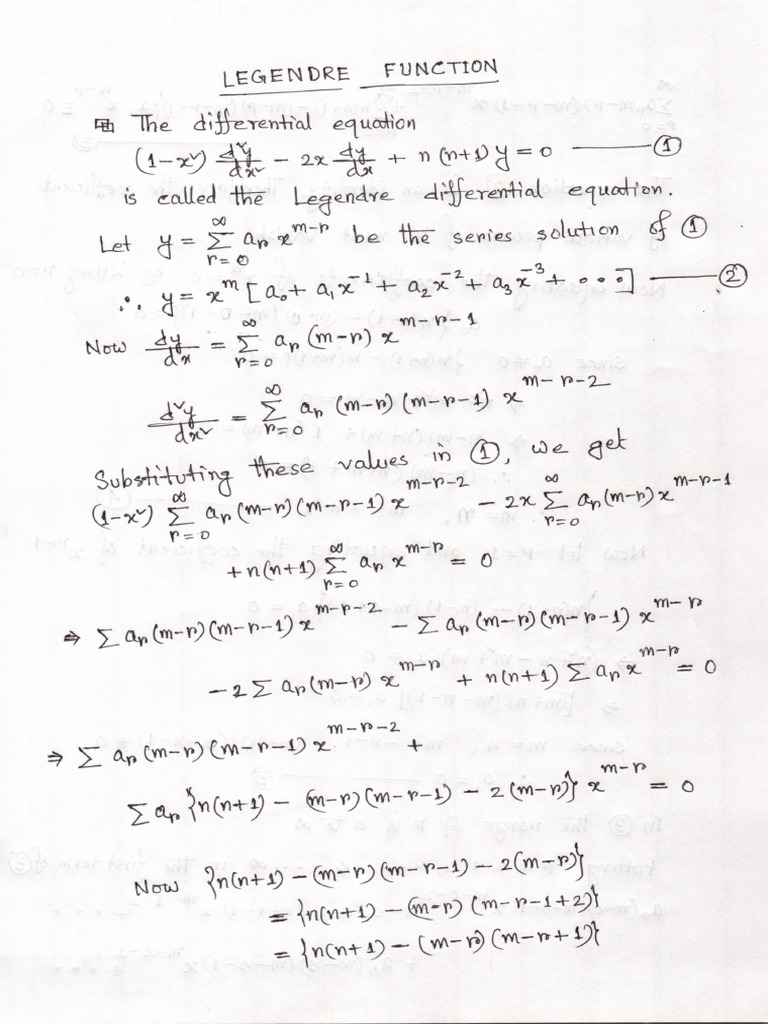 LEGENDRE FUNCTION
The differential equation
(1-x²) d²y/dx² - 2x dy/dx + n(n+1)y = 0 ——— ①
is called the Legendre differential equation.
Let y = ∑_{r=0}^{∞} a_r x^{m-r} be the series solution of ①
∴ y = x^m [a₀ + a₁x^{-1} + a₂x^{-2} + a₃x^{-3} + ...] ——— ②
Now dy/dx = ∑_{r=0}^{∞} a_r (m-r) x^{m-r-1}
d²y/dx² = ∑_{r=0}^{∞} a_r (m-r)(m-r-1) x^{m-r-2}
Substituting these values in ①, we get
(1-x²) ∑_{r=0}^{∞} a_r (m-r)(m-r-1) x^{m-r-2} - 2x ∑_{r=0}^{∞} a_r (m-r) x^{m-r-1}
+ n(n+1) ∑_{r=0}^{∞} a_r x^{m-r} = 0
⇒ ∑ a_r (m-r)(m-r-1) x^{m-r-2} - ∑ a_r (m-r)(m-r-1) x^{m-r}
- 2 ∑ a_r (m-r) x^{m-r} + n(n+1) ∑ a_r x^{m-r} = 0
⇒ ∑ a_r (m-r)(m-r-1) x^{m-r-2} +
∑ a_r {n(n+1) - (m-r)(m-r-1) - 2(m-r)} x^{m-r} = 0
Now {n(n+1) - (m-r)(m-r-1) - 2(m-r)}
= {n(n+1) - (m-r)(m-r-1+2)}
= {n(n+1) - (m-r)(m-r+1)}